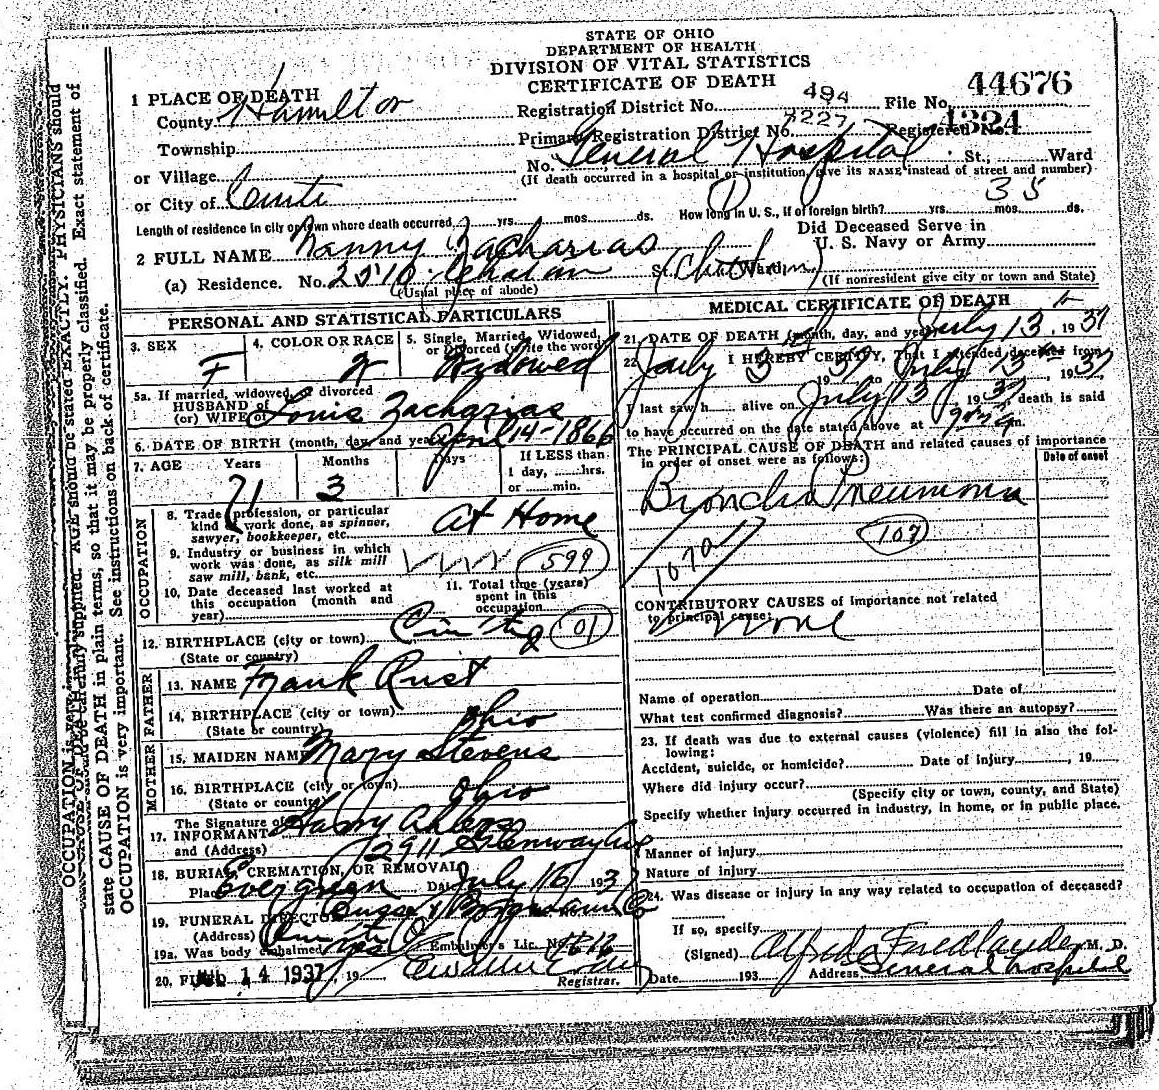 STATE OF OHIO
DEPARTMENT OF HEALTH
DIVISION OF VITAL STATISTICS
CERTIFICATE OF DEATH
1 PLACE OF DEATH
County Hamilton
Township
or Village
or City of
Registration District No. 494 File No. 44676
Primary Registration District No. Registered No. 4324
No. General Hospital St., Ward
(If death occurred in a hospital or institution, give its NAME instead of street and number)
Length of residence in city or town where death occurred yrs. mos. ds. How long in U.S., if of foreign birth? yrs. mos. ds.
35
2 FULL NAME Nanny Zacharias
Did Deceased Serve in
U. S. Navy or Army
(a) Residence. No. 2510 St. Ward
(Usual place of abode) (If nonresident give city or town and State)
PERSONAL AND STATISTICAL PARTICULARS
3. SEX F
4. COLOR OR RACE W
5. Single, Married, Widowed, or Divorced (write the word) Widowed
5a. If married, widowed, or divorced
HUSBAND of
(or) WIFE of Louis Zacharias
6. DATE OF BIRTH (month, day, and year) April 14-1866
7. AGE Years 71 Months 3 Days If LESS than
1 day, hrs.
or min.
OCCUPATION
8. Trade, profession, or particular
kind of work done, as spinner,
sawyer, bookkeeper, etc. At Home
9. Industry or business in which
work was done, as silk mill
saw mill, bank, etc. 599
10. Date deceased last worked at
this occupation (month and
year)
11. Total time (years)
spent in this
occupation
12. BIRTHPLACE (city or town) 01
(State or country)
FATHER
13. NAME Frank Rust
14. BIRTHPLACE (city or town)
(State or country) Ohio
MOTHER
15. MAIDEN NAME Mary Stevens
16. BIRTHPLACE (city or town)
(State or country) Ohio
The Signature of
17. INFORMANT Harry Ahlers
and (Address) 2911
18. BURIAL, CREMATION, OR REMOVAL
Place Evergreen Date July 16 1937
19. FUNERAL DIRECTOR
(Address)
19a. Was body embalmed yes Embalmer's Lic. No.
20. FILED 14 1937, 19
Registrar.
MEDICAL CERTIFICATE OF DEATH
21. DATE OF DEATH (month, day, and year) July 13, 1937
22. I HEREBY CERTIFY, That I attended deceased from
July 3 1937 to July 13, 1937
I last saw h alive on July 13 1937, death is said
to have occurred on the date stated above at m.
The PRINCIPAL CAUSE OF DEATH and related causes of importance
in order of onset were as follows:
Date of onset
Broncho Pneumonia
107
107a
CONTRIBUTORY CAUSES of importance not related
to principal cause:
none
Name of operation Date of
What test confirmed diagnosis? Was there an autopsy?
23. If death was due to external causes (violence) fill in also the following:
Accident, suicide, or homicide? Date of injury, 19
Where did injury occur?
(Specify city or town, county, and State)
Specify whether injury occurred in industry, in home, or in public place.
Manner of injury
Nature of injury
24. Was disease or injury in any way related to occupation of deceased?
If so, specify
(Signed) Alfred Friedlander M. D.
Date 193 Address General Hospital
AGE should be stated EXACTLY. PHYSICIANS should
state CAUSE OF DEATH in plain terms, so that it may be properly classified. Exact statement of
OCCUPATION is very important. See instructions on back of certificate.